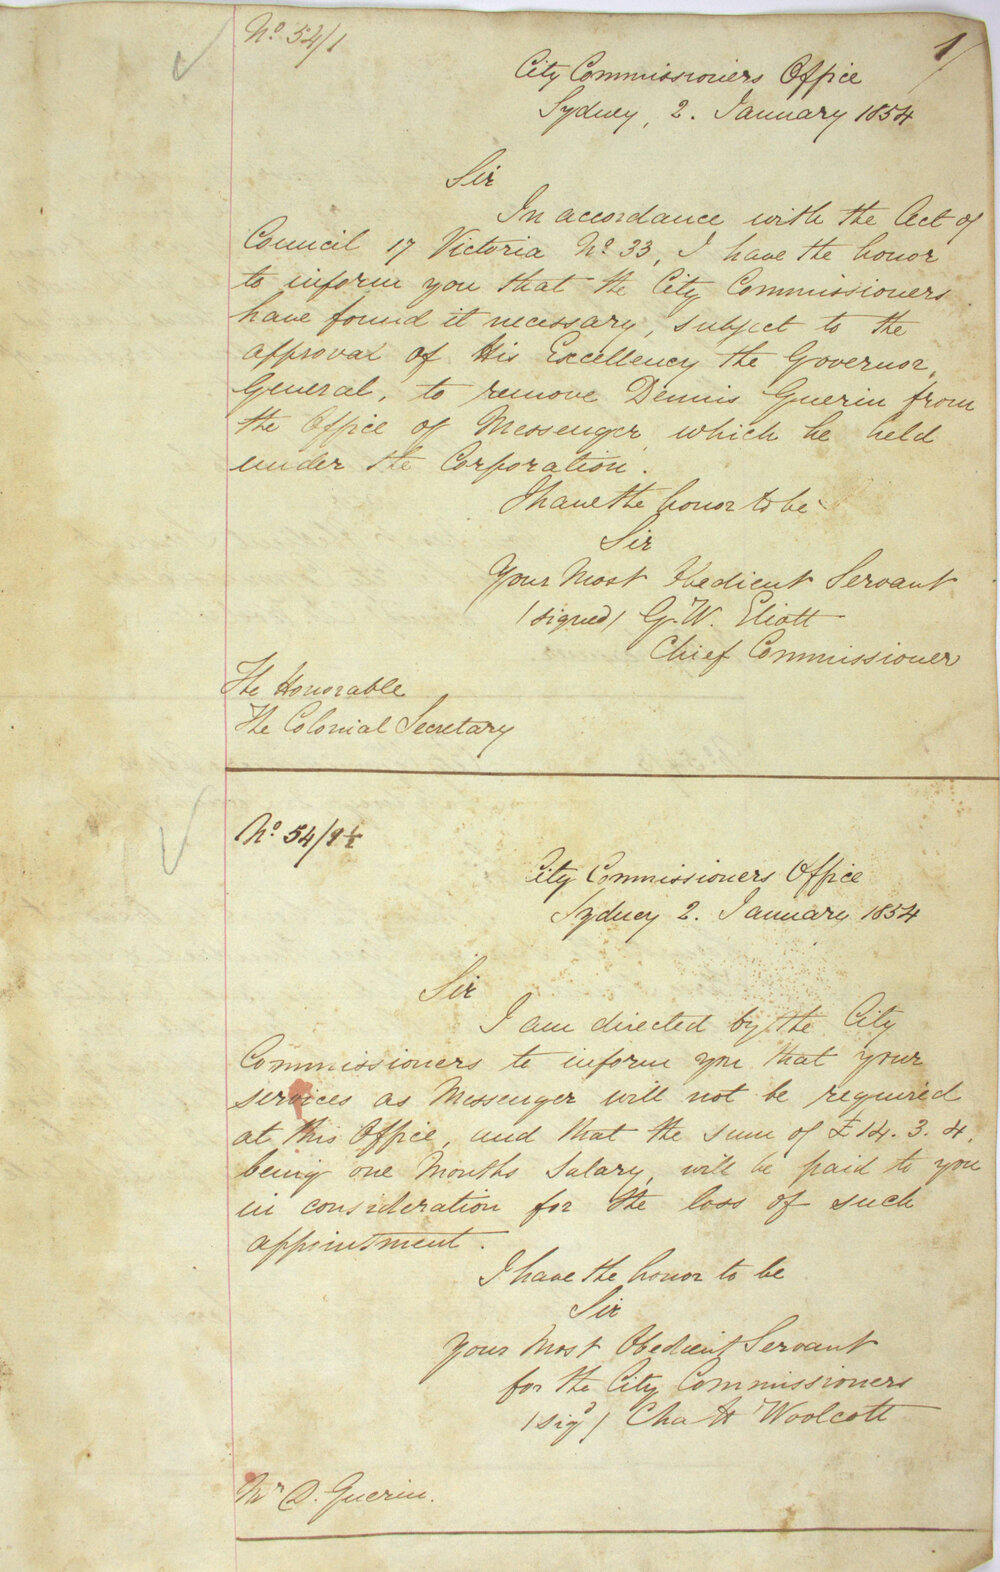 No. 54/1
1/
City Commissioners Office
Sydney, 2. January 1854
Sir
In accordance with the Act of
Council 17 Victoria No. 33, I have the honor
to inform you that the City Commissioners
have found it necessary, subject to the
approval of His Excellency the Governor,
General, to remove Dennis Guerin from
the Office of Messenger which he held
under the Corporation.
I have the honor to be
Sir
Your Most Obedient Servant
(signed) G. W. Eliott
Chief Commissioner
The Honorable
The Colonial Secretary
No. 54/1½
City Commissioners Office
Sydney 2. January 1854
Sir
I am directed by the City
Commissioners to inform you that your
services as Messenger will not be required
at this Office, and that the sum of £14. 3. 4,
being one Months Salary, will be paid to you
in consideration for the loss of such
appointment.
I have the honor to be
Sir
Your Most Obedient Servant
for the City Commissioners
(sigd) Cha H Woolcott
Mr D. Guerin.